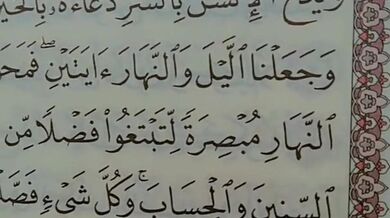 وَيَدْعُ الْإِنسَٰنُ بِالشَّرِّ دُعَآءَهُۥ بِالْخَيْرِ
وَجَعَلْنَا الَّيْلَ وَالنَّهَارَ ءَايَتَيْنِ ۖ فَمَحَوْ
النَّهَارِ مُبْصِرَةً لِّتَبْتَغُوا۟ فَضْلًا مِّن
السِّنِينَ وَالْحِسَابَ ۚ وَكُلَّ شَىْءٍ فَصَّلْ